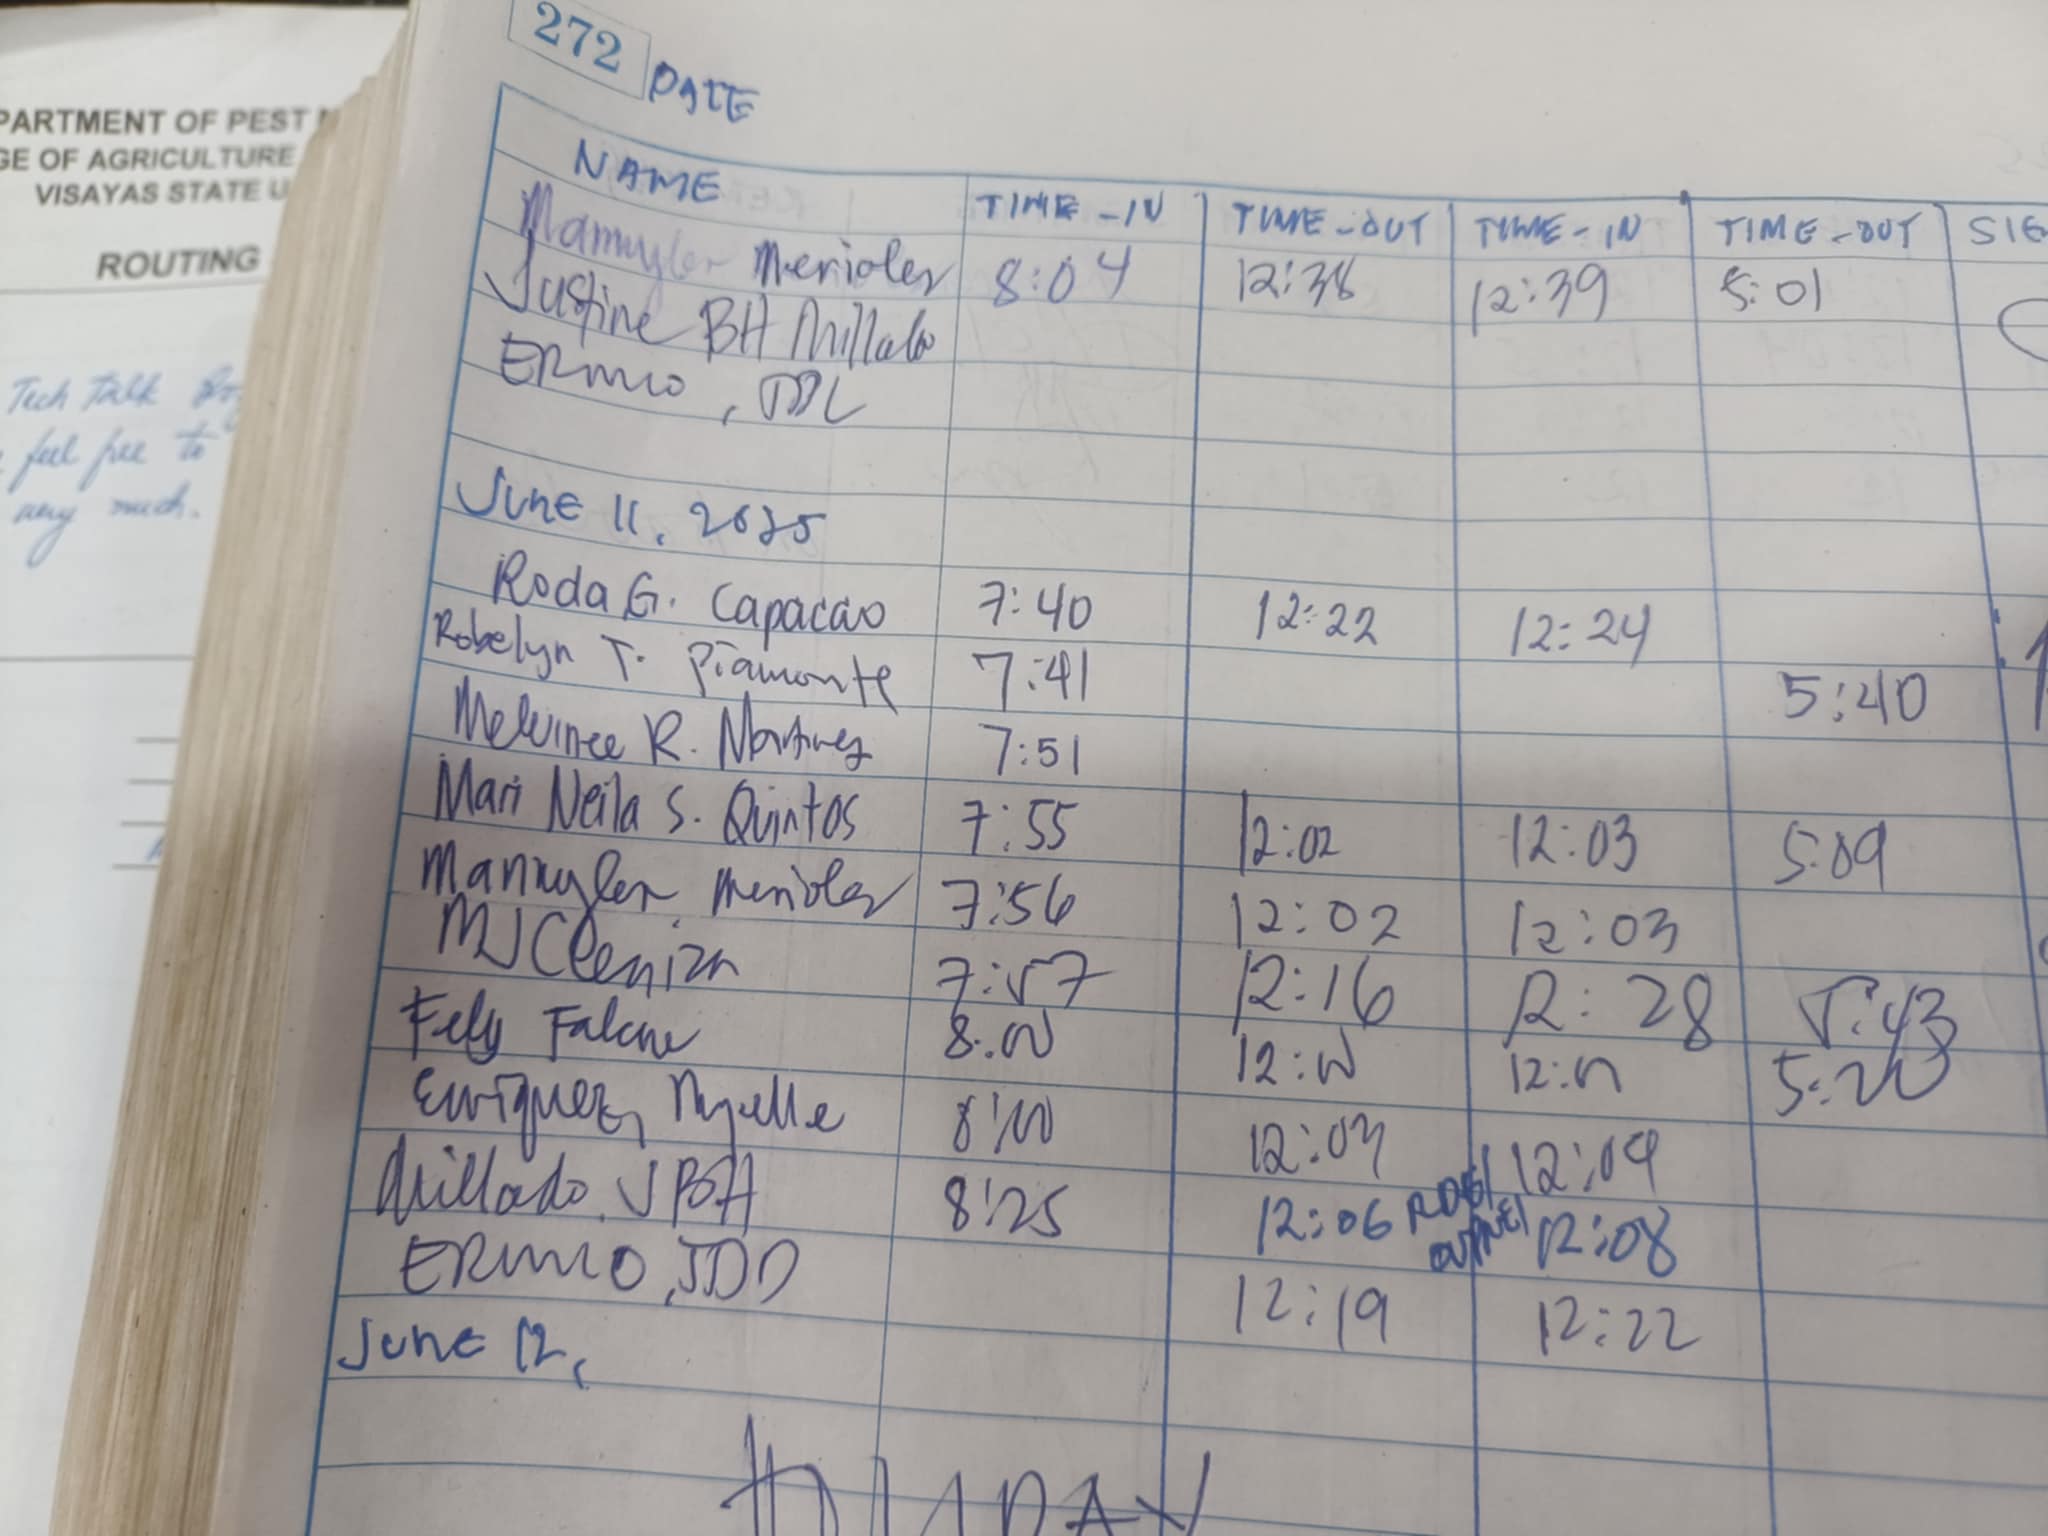 272 DATE
PARTMENT OF PEST
GE OF AGRICULTURE
VISAYAS STATE U
ROUTING
Tech Talk
feel free to
very much.
NAME TIME-IN TIME-OUT TIME-IN TIME-OUT SIG
Mannylen Merioles 8:04 12:38 12:39 5:01
Justine BH Millado
ERMIO, JDL
June 11, 2025
Roda G. Capacao 7:40 12:22 12:24
Robelyn T. Piamonte 7:41 5:40
Melvinee R. Martinez 7:51
Mari Neila S. Quintos 7:55 12:02 12:03 5:09
Mannylen Merioles 7:56 12:02 12:03
MJ Cleniza 7:57 12:16 12:28 5:43
Fely Falcne 8:00 12: 12: 5:20
Enriquez, 8:00 12:03 12:04
Millado, JBH 8:25 12:06 12:08
ERMIO, JDD 12:19 12:22
June 12,
HOLIDAY